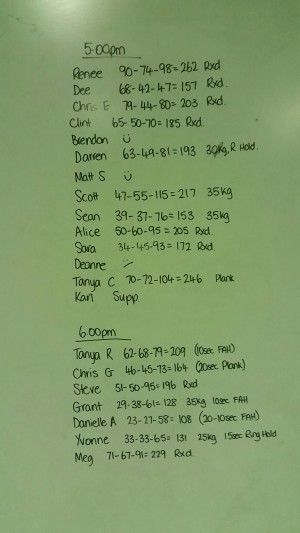 5:00pm
Renee 90-74-98=262 Rxd
Dee 68-42-47=157 Rxd.
Chris E 79-44-80=203 Rxd.
Clint 65-50-70=185 Rxd.
Brendon
Darren 63-49-81=193 Hold.
Matt S
Scott 47-55-115=217 35kg
Sean 39-37-76=153 35kg
Alice 50-60-95=205 Rxd.
Sara 34-45-93=172 Rxd.
Deanne
Tanya C 70-72-104=246 Plank
Kari Supp.
6:00pm
Tanya R 62-68-79=209 (10sec FAH)
Chris G 46-45-73=164 (20sec Plank)
Steve 51-50-95=196 Rxd
Grant 29-38-61=128 35kg 10sec FAH
Danielle A 23-27-58=108 (20-10sec FAH)
Yvonne 33-33-65=131 25kg 15sec Ring Hold
Meg 71-67-91=229 Rxd.